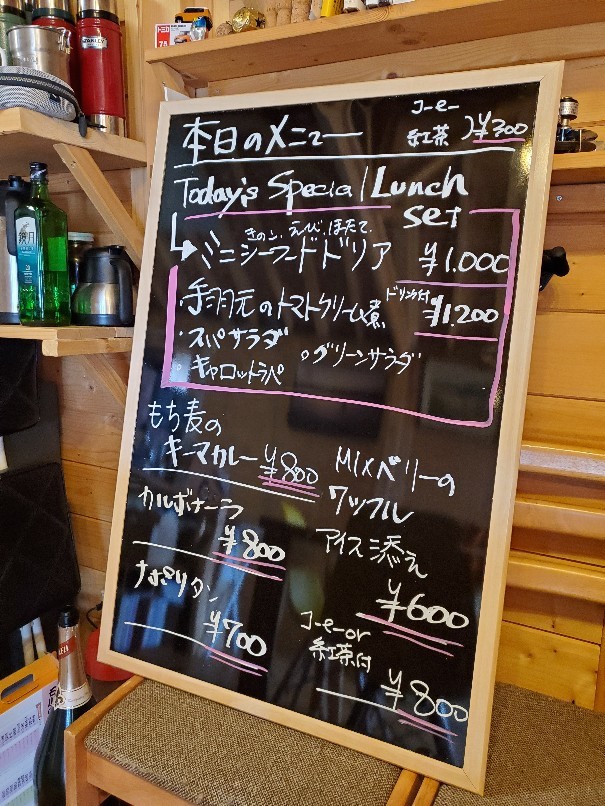 STANLEY
本日のメニュー
コーヒー
紅茶 ¥300
Today's Special Lunch
set
きのこ、えび、ほたて、
ミニシーフードドリア
¥1.000
・手羽元のトマトクリーム煮
ドリンク付
¥1.200
・スパサラダ
・グリーンサラダ
・キャロットラペ
もち麦の
キーマカレー ¥800
カルボナーラ
¥800
ナポリタン
¥700
MIXベリーの
ワッフル
アイス添え
¥600
コーヒーor
紅茶付
¥800